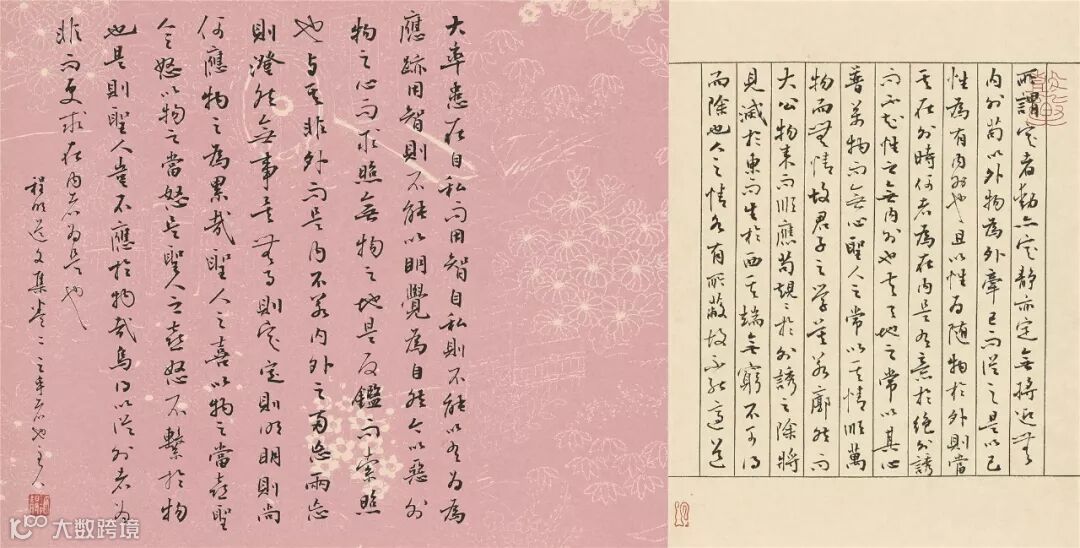 所謂定者動亦定靜亦定無將迎無
內外苟以外物為外牽己而從之是以己
性為有內外也且以性為隨物於外則當
其在外時何者為在內是有意於絕外誘
而不知性之無內外也夫天地之常以其心
普萬物而無心聖人之常以其情順萬
物而無情故君子之學莫若廓然而
大公物來而順應苟規規於外誘之除將
見滅於東而生於西其端無窮不可得
而除也人之情各有所蔽故不能適道
大率患在自私而用智自私則不能以有為為
應跡用智則不能以明覺為自然今以惡外
物之心而求照無物之地是反鑑而索照
也與其非外而是內不若內外之兩忘兩忘
則澄然無事矣無事則定定則明明則尚
何應物之為累哉聖人之喜以物之當喜聖
人之怒以物之當怒是聖人之喜怒不繫於物
也是則聖人豈不應於物哉烏得以從外者為
非而更求在內者為是也
程明道文集卷二
大数跨境